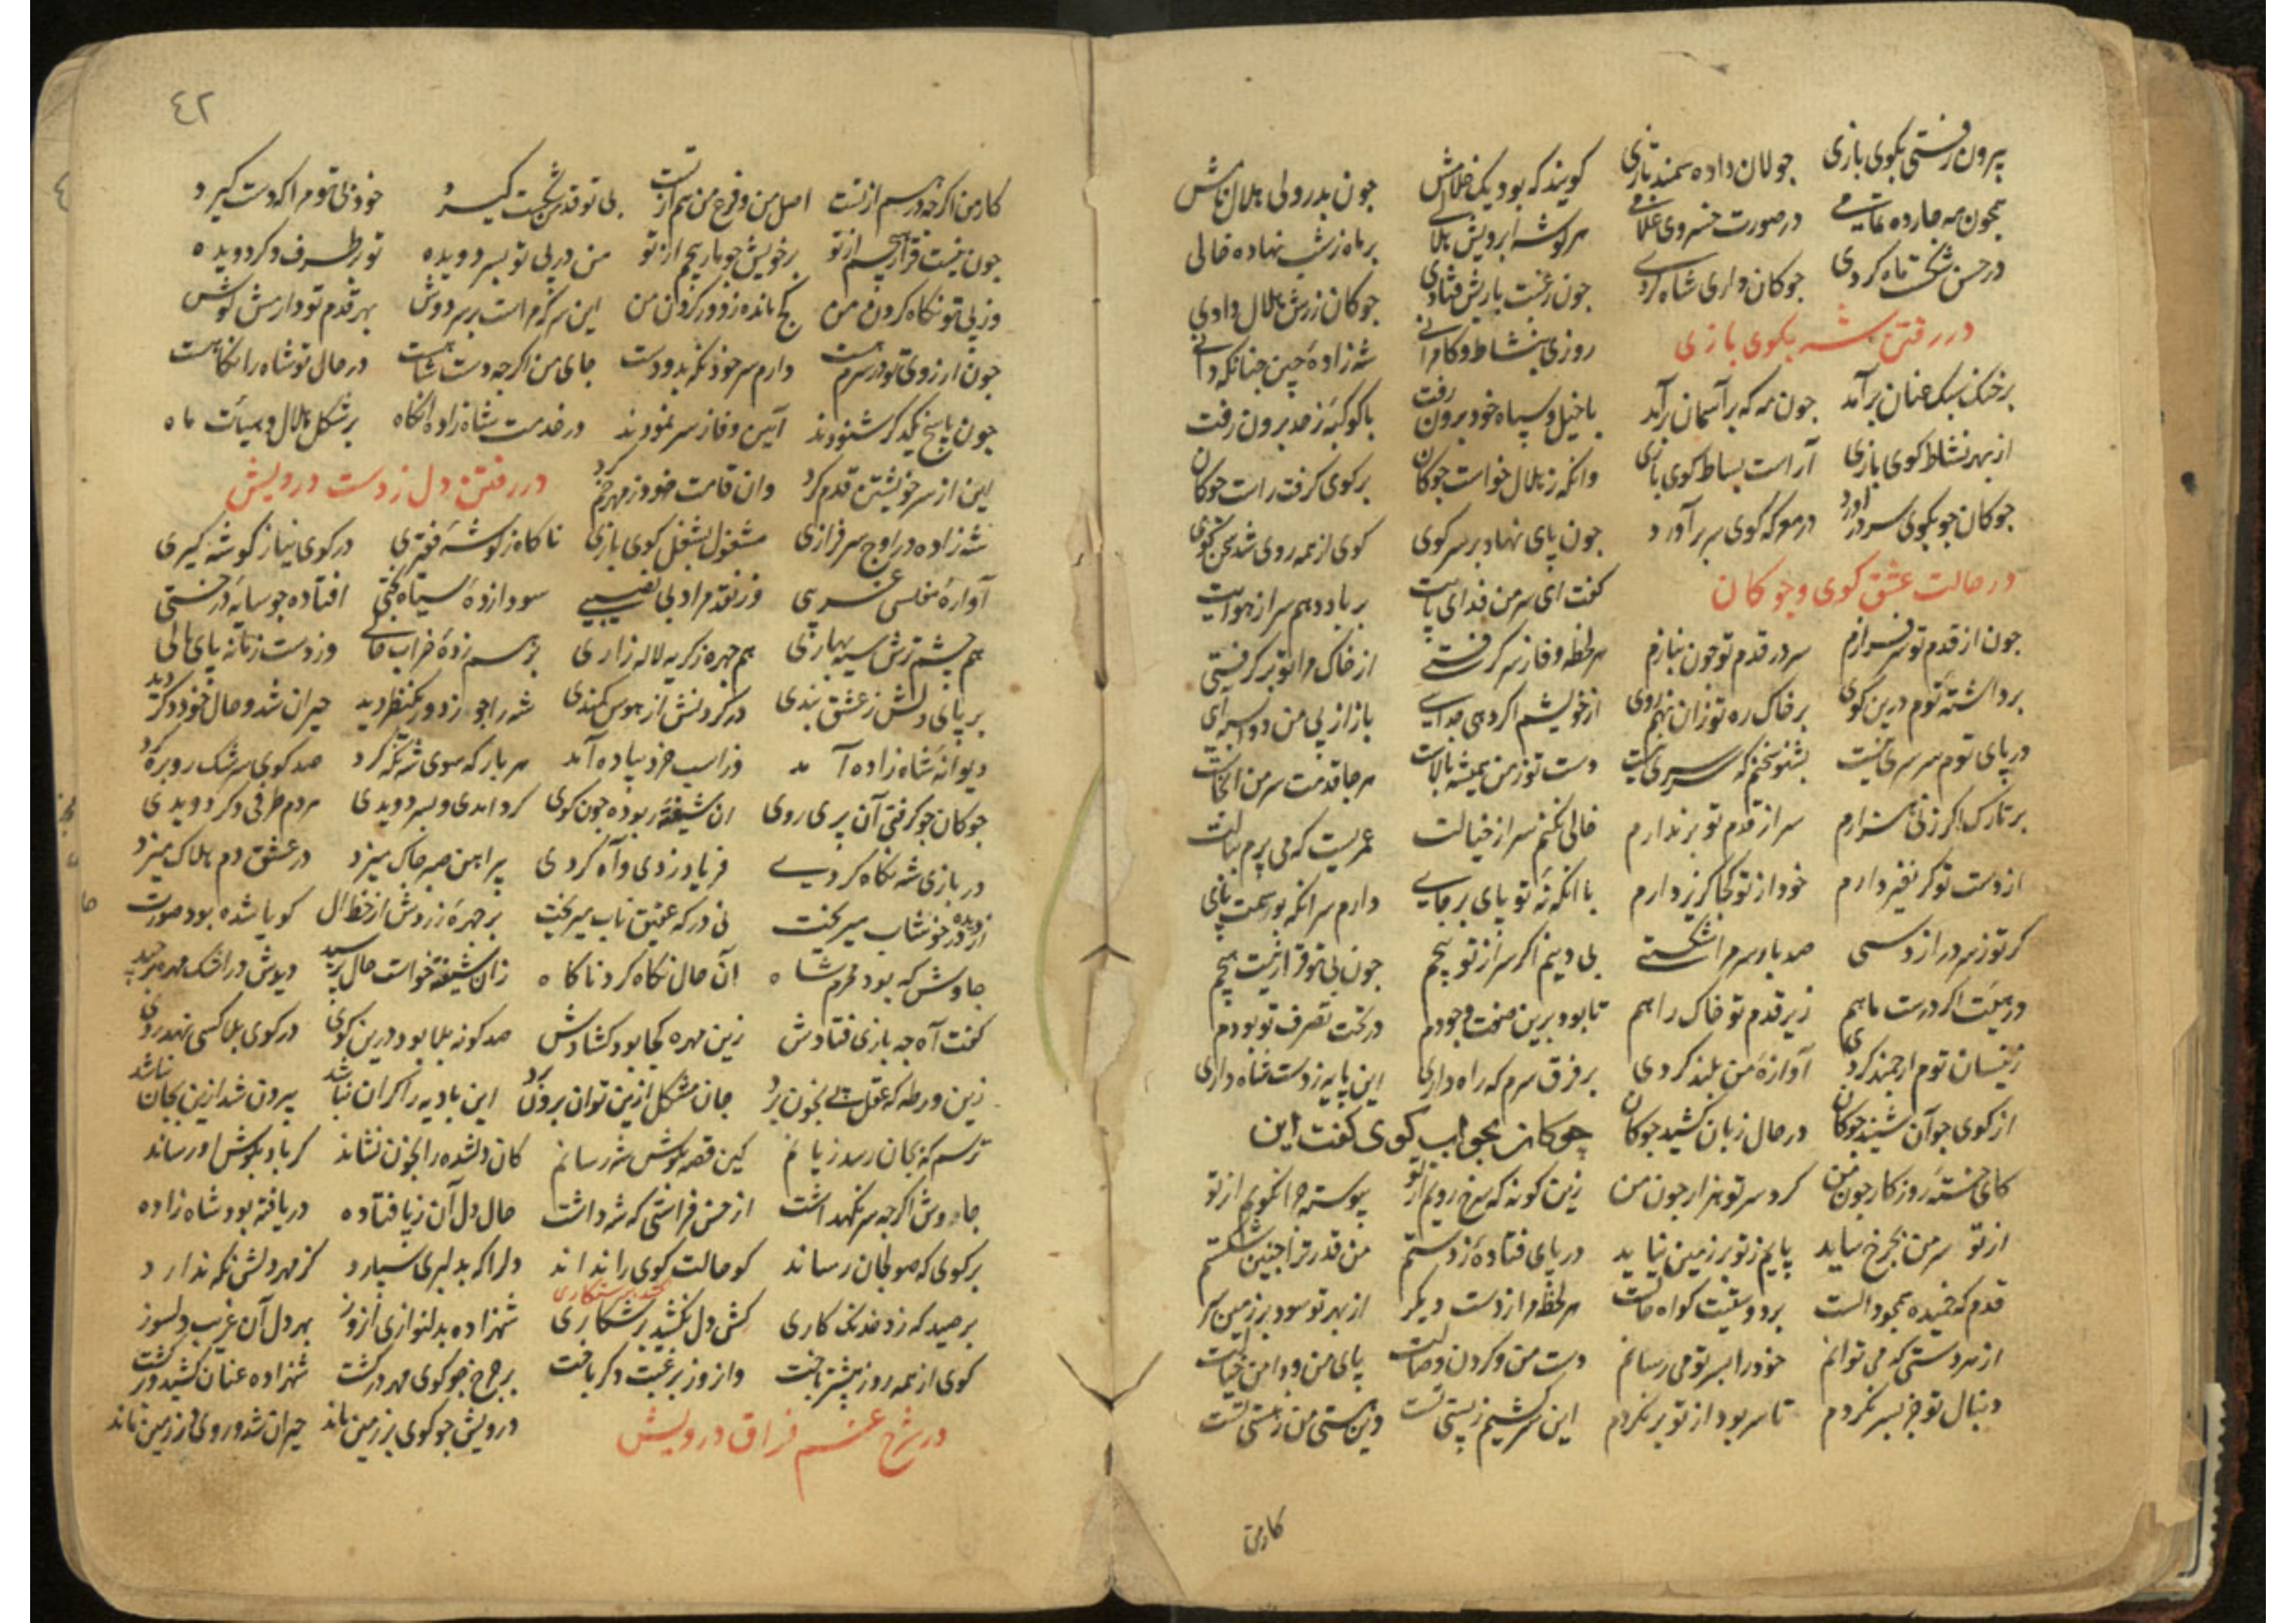 بیرون رفتی بکوی بازی جولان داده سمند تازی کویند که بود یک غلامش چون بدر ولی هلال نامش
همچون مه چارده تمامی در صورت خسروی غلامی هر کوشه ابرویش هلالی بر ماه ز شب نهاده خالی
در حسن شکست ماه کردی چوکان داری شاه کردی چون رغبت بازیش فتادی چوکان زرش هلال دادی
در رفتن شه بکوی بازی روزی بنشاط و کامرانی شه زاده چین چنانکه دانی
بر خنک سبک عنان برآمد چون مه که بر آسمان برآمد با خیل و سپاه خود برون رفت با کوکبه ز حد برون رفت
از بهر نشاط کوی بازی آراست بساط کوی بازی وانکه ز هلال خواست چوکان بر کوی کرفت راست چوکان
چوکان چو بکوی سر درآورد در معرکه کوی سر برآورد چون پای نهاد بر سر کوی کوی از همه روی شد
در حالت عشق کوی و چوکان کفت ای سر من فدای پایت بر باد دهم سر از هوایت
چون از قدم تو سرفرازم سر در قدم تو چون نبازم هر لحظه وفا ز سر کرفتی از خاک مرا تو بر کرفتی
برداشته توم درین کوی بر خاک ره تو زان نهم روی از خویشم اگر دهی جدایی باز از پی من دوانه آیی
در پای توم سر سری نیست بشنو سخنم که سرسری نیست دست تو ز من همیشه بالاست هر جا قدمت سر من آنجاست
بر تارک اگر زنی هزارم سر از قدم تو بر ندارم خالی نکنم سر از خیالت عمریست که می پرم ببالت
از دست تو کر نفیر دارم خود از تو کجا کزیر دارم با آنکه نه تو پای بر جای دارم سر آنکه بوسمت پای
کر تو ز سر درازدستی صد بار سرم اگر شکستی بی دینم اگر سر از تو پیچم چون بی تو قرار نیست هیچم
در هیئت اگر درست ماهم زیر قدم تو خاک راهم تا بود برین صفت وجودم در تحت تصرف تو بودم
زینسان توم ارجمند کردی آوازه من بلند کردی بر فرق سرم که راه داری این پایه ز دست شاه داری
از کوی چو آن شنید چوکان در حال زبان کشید چوکان چوکان بجواب کوی کفت این
کای خسته روزکار چون من کرد سر تو هزار چون من زین کونه که سرخ رویم از تو پیوسته چرا نکویم از تو
از تو سر من بچرخ ساید پایم ز تو بر زمین نیاید در پای فتاده ز دستم من قدر ترا چنین شکستم
قدم که خمیده همچو دالست بر دوستیت کواه حالست هر لحظه مرا ز دست دیکر از بهر تو سود بر زمین سر
از هر دستی که می توانم خود را بسر تو می رسانم دست من و کردن وصالت پای من و دامن خیالت
دنبال تو جز بسر نکردم تا سر بود از تو بر نکردم این سرکشیم ز پستی تست وین هستی من ز هستی تست
کار من
٤٢
کار من اکر چه درهم از تست اصل من و فرع من هم از تست بی تو قدمم شکست کیرد خود بی تو مرا که دست کیرد
چون نیست قرار هیچم از تو بر خویش چو مار پیچم از تو من در پی تو بسر دویده تو بر طرف دکر دویده
وز پی تو نکاه کردن من کج مانده ز دور کردن من این سر کرم است بر سر دوش بهر قدم تو دارمش کوش
چون آرزوی تو در سرم هست دارم سر خود نکه بدو دست جای من اگر چه دست شاهست در حال تو شاه را نکاهست
چون پاسخ یکدکر شنودند آیین وفا ز سر نمودند در خدمت شاه زاده آنکاه بر شکل هلال و هیأت ماه
این از سر خویشتن قدم کرد وان قامت خود ز مهر خم کرد در رفتن دل ز دست درویش
شه زاده در اوج سرفرازی مشغول بشغل کوی بازی ناکاه ز کوشه فقیری در کوی نیاز کوشه کیری
آواره مفلسی غریبی وز نقد مراد بی نصیبی سودازده سیاه بختی افتاده چو سایه درختی
هم چشم ترش سیه بهاری هم چهره ز کریه لاله زاری برهم زده خراب حالی وز دست زمانه پای مالی
بر پای دلش ز عشق بندی در کردنش از هوس کمندی شه را چو ز دور یک نظر دید حیران شد و حال خود دکر دید
دیوانه شاه زاده آمد وز اسب خرد پیاده آمد هر بار که سوی شه نکه کرد صد کوی سرشک رو بره کرد
چوکان چو کرفتی آن پری روی آن شیفته ربوده چون کوی کرد آمدی و بسر دویدی مردم طرفی دکر دویدی
در بازی شه نکاه کردی فریاد زدی و آه کردی پیراهن صبر چاک میزد در عشق دم هلاک میزد
از دیده در خوشاب میریخت نی در که عقیق ناب میریخت بر چهره زردش از خط آل کویا شده بود صورت حال
چاوش که بود محرم شاه آن حال نکاه کرد ناکاه زان شیفته خواست حال پرسید
کفت آه چه بازی فتادش زین مهره کجا بود کشادش صد کونه بلا بود درین کوی در کوی بلا کسی نهد روی
زین ورطه که عقل پی بخون برد جان مشکل ازین توان برون برد این بادیه را کران نباشد بیرون شد ازین بجان نباشد
ترسم که بجان رسد زیانم کین قصه بکوش شه رسانم کان دلشده را بخون نشاند کر باد بکوش او رساند
چاووش اکر چه سر نکهداشت از حسن فراستی که شه داشت حال دل آن ز پا فتاده دریافته بود شاه زاده
بر کوی که صولجان رساند کو حالت کوی را نداند دلرا که بدلبری سپارد کز مهر دلش نکه ندارد
بر صید که زد خدنک کاری کش دل نکشید بر شکاری شهزاده بدلنوازی آن روز بهر دل آن غریب دلسوز
کوی از همه روز پیشتر باخت وان روز برغبت دکر باخت بر چرخ چو کوی مهر درکشت شهزاده عنان کشید و درکشت
در شرح غم فراق درویش درویش چو کوی بر زمین ماند حیران شد و روی بر زمین ماند